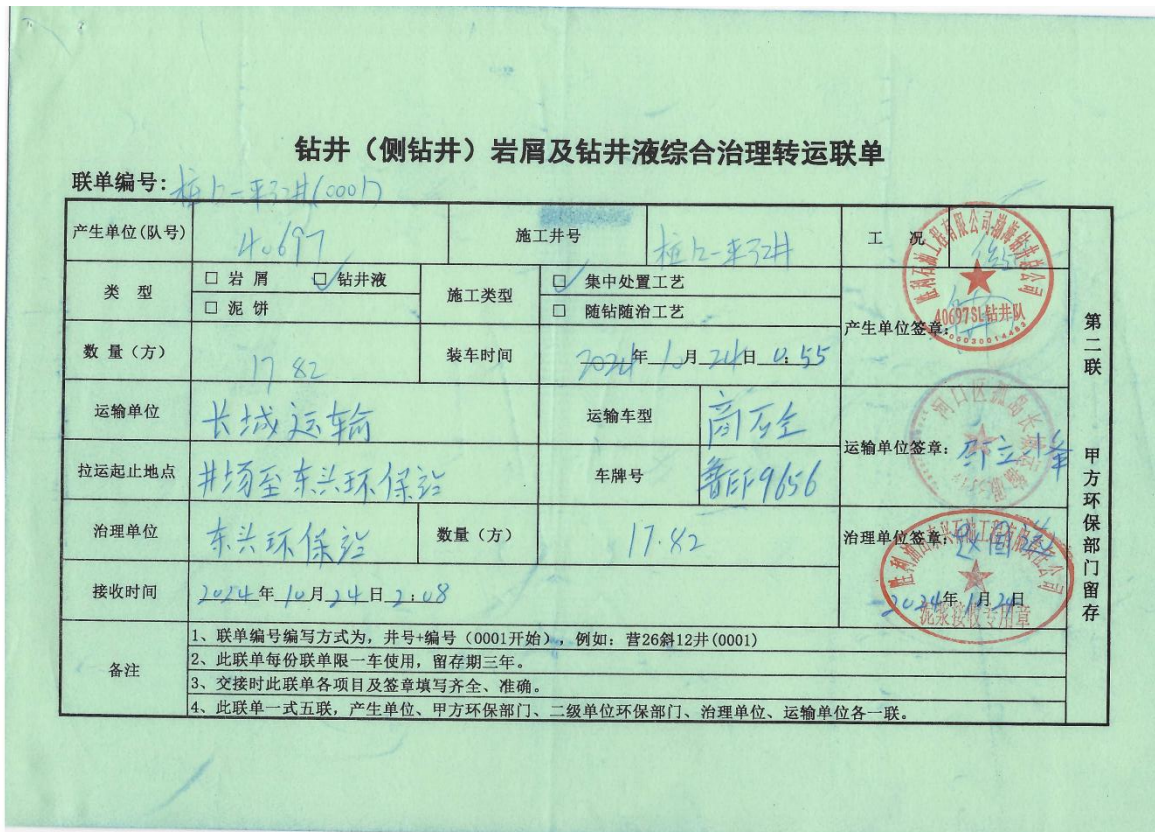 钻井（侧钻井）岩屑及钻井液综合治理转运联单
联单编号：(0001)
产生单位(队号) 40697 施工井号 工 况
类 型 □ 岩 屑 ☑ 钻井液 施工类型 ☑ 集中处置工艺
□ 泥 饼 □ 随钻随治工艺
产生单位签章：
数 量（方） 17.82 装车时间 2024年10月24日 0:55
运输单位 长城运输 运输车型
运输单位签章：
拉运起止地点 井场至东兴环保站 车牌号 9656
治理单位 东兴环保站 数量（方） 17.82 治理单位签章：
接收时间 2024年10月24日2:08
2024年10月24日
备注
1、联单编号编写方式为，井号+编号（0001开始），例如：营26斜12井(0001)
2、此联单每份联单限一车使用，留存期三年。
3、交接时此联单各项目及签章填写齐全、准确。
4、此联单一式五联，产生单位、甲方环保部门、二级单位环保部门、治理单位、运输单位各一联。
第二联 甲方环保部门留存
胜利石油工程有限公司渤海钻井总公司
40697SL钻井队
泥浆接收专用章